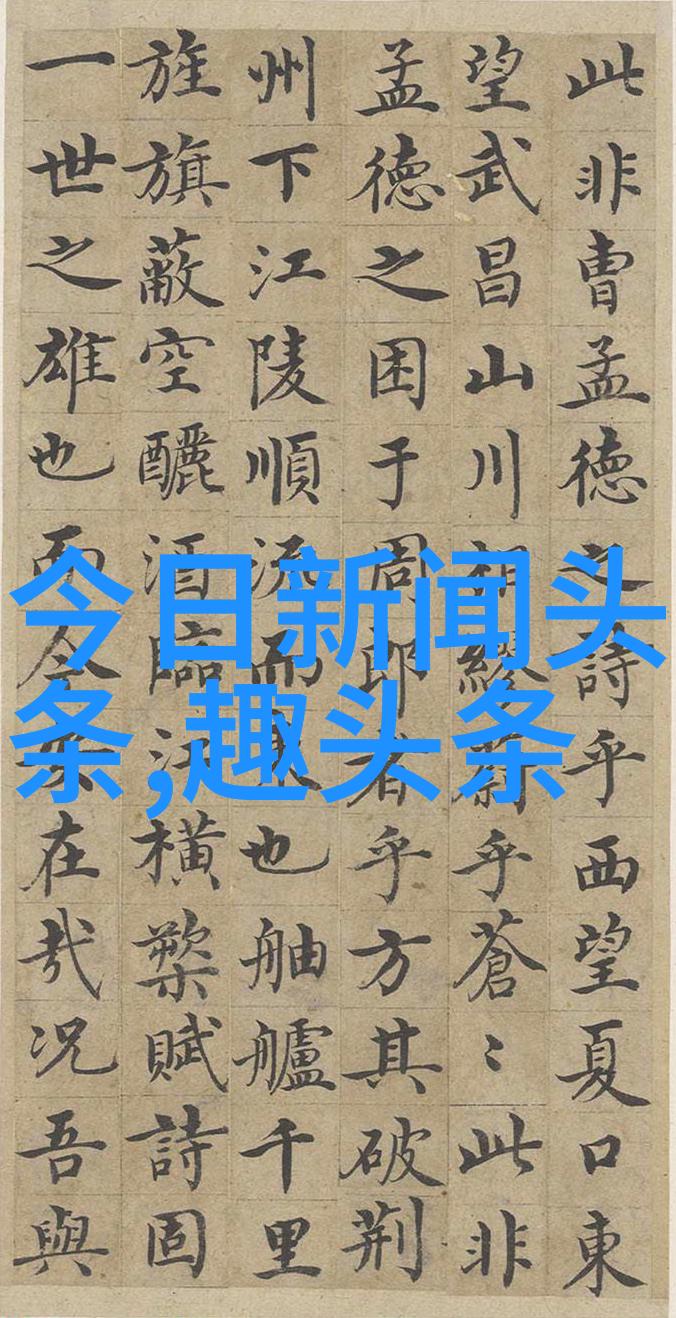 此非曹孟德之詩乎西望夏口東
望武昌山川相繆蔚乎蒼〻此非
孟德之困于周郎者乎方其破荊
州下江陵順流而東也舳艫千里
旌旗蔽空釃酒臨江橫槊賦詩固
一世之雄也而今安在哉况吾與
今日新闻头
条,趣头条